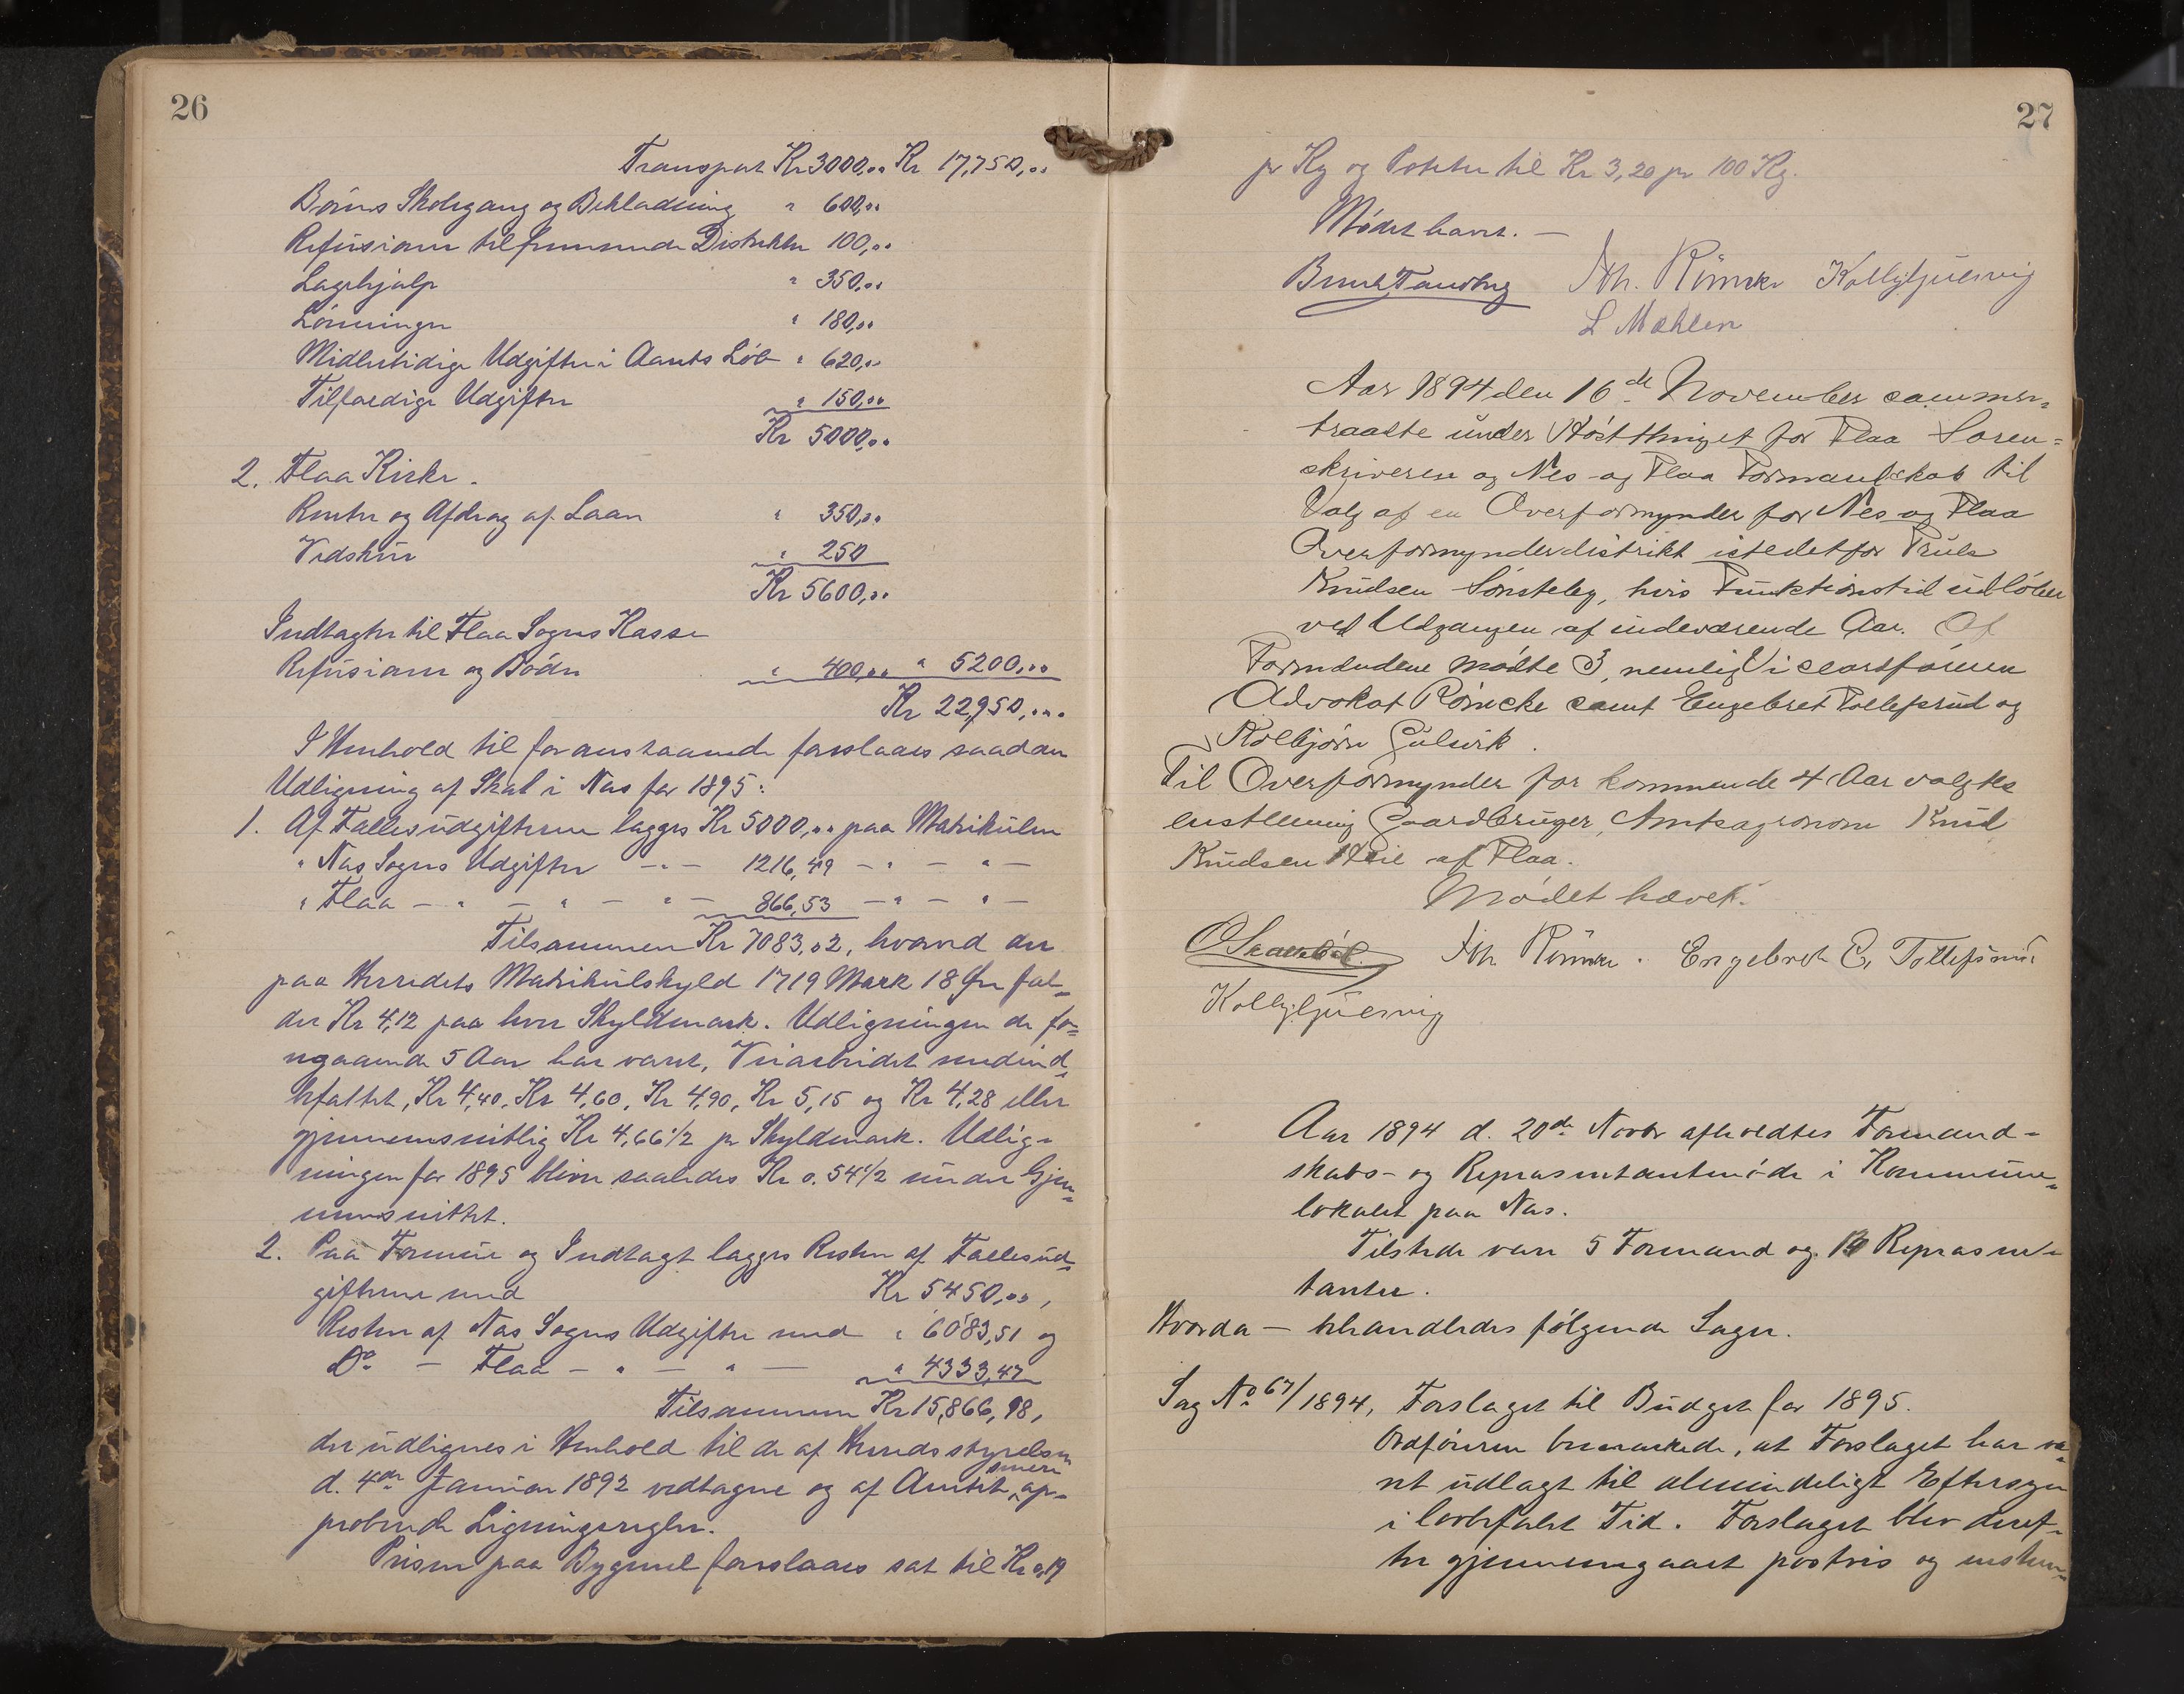 26
Transport Kr 3000,.. Kr 17,750,..
Børns Skolegang og Beklædning " 600,..
Refusioner til fremmede Distrikter 100,..
Lægehjælp " 350,..
Lønninger " 180,..
Midlertidige Udgifter i Aarets Løb " 620,..
Tilfældige Udgifter " 150,..
Kr 5000,..
2. Flaa Kirke.
Renter og Afdrag af Laan " 350,..
Vedskur " 250
Kr 5600,..
Indtægter til Flaa Sogns Kasse
Refusioner og Bøder " 400,.. " 5200,..
Kr 22,950,...
I Henhold til foranstaaende foreslaaes saadan
Udligning af Skat i Næs for 1895:
1. Af Fællesudgifterne lægges Kr 5000,.. paa Matrikulen
" Næs Sogns Udgifter -"- 1216,49 -"- "-
" Flaa - " - " - " - 866,53 -"- "-
Tilsammen Kr 7083,02, hvorved der
paa Herredets Matrikulskyld 1719 Mark 18 Øre fal-
der Kr 4,12 paa hver Skyldmark. Udligningen de fo-
regaaende 5 Aar har været, Veiarbeidet medind-
befattet, Kr 4,40, Kr 4,60, Kr 4,90, Kr 5,15 og Kr 4,28 eller
gjennemsnitlig Kr 4,66 1/2 pr Skyldmark. Udlig-
ningen for 1895 bliver saaledes Kr 0.54 1/2 under Gjen-
nemsnittet.
2. Paa Formue og Indtægt lægges Resten af Fællesud-
gifterne med Kr 5450,..,
Resten af Næs Sogns Udgifter med " 6083,51 og
Do - Flaa - " - " - " 4333,47
Tilsammen Kr 15,866,98,
der udlignes i Henhold til de af Herredsstyrelsen
d. 4de Januar 1892 vedtagne og af Amtet, senere ap-
proberede Ligningsregler.
Prisen paa Bygmel foreslaaes sat til Kr 0,19
27
pr Kg og Poteter til Kr 3,20 pr 100 Kg.
Mødet hævet. -
Brunh Tandberg Ath. Römcke Kolbj. Gulsvig
L Mæhlen
Aar 1894 den 16de November sammen-
traadte under Høstthinget for Flaa Soren-
skriveren og Nes- og Flaa Formandskab til
Valg af en Overformynder for Nes og Flaa
Overformynderdistrikt istedetfor Truls
Knudsen Sønsteby, hvis Funktionstid udløber
ved Udgangen af indeværende Aar. Af
Formændene mødte 3, nemlig Viceordføreren
Advokat Römcke samt Engebret Tollefsrud og
Kolbjørn Gulsvik.
Til Overformynder for kommende 4 Aar valgtes
enstemmig Gaardbruger, Amtsagronom Knud
Knudsen af Flaa.
Mødet hævet.
Ath Römcke. Engebret E. Tollefsrud
Kolbj. Gulsvig
Aar 1894 d. 20de Novbr afholdtes Formand-
skabs- og Repræsentantmøde i Kommune-
lokalet paa Næs.
Tilstede vare 5 Formænd og Repræsen-
tanter.
Hvorda - behandledes følgende Sager.
Sag No 67/1894, Forslaget til Budget for 1895.
Ordføreren bemærkede, at Forslaget har væ-
ret udlagt til almindeligt Eftersyn
i lovbefalet Tid. Forslaget blev deref-
ter gjennemgaaet postvis og enstem-